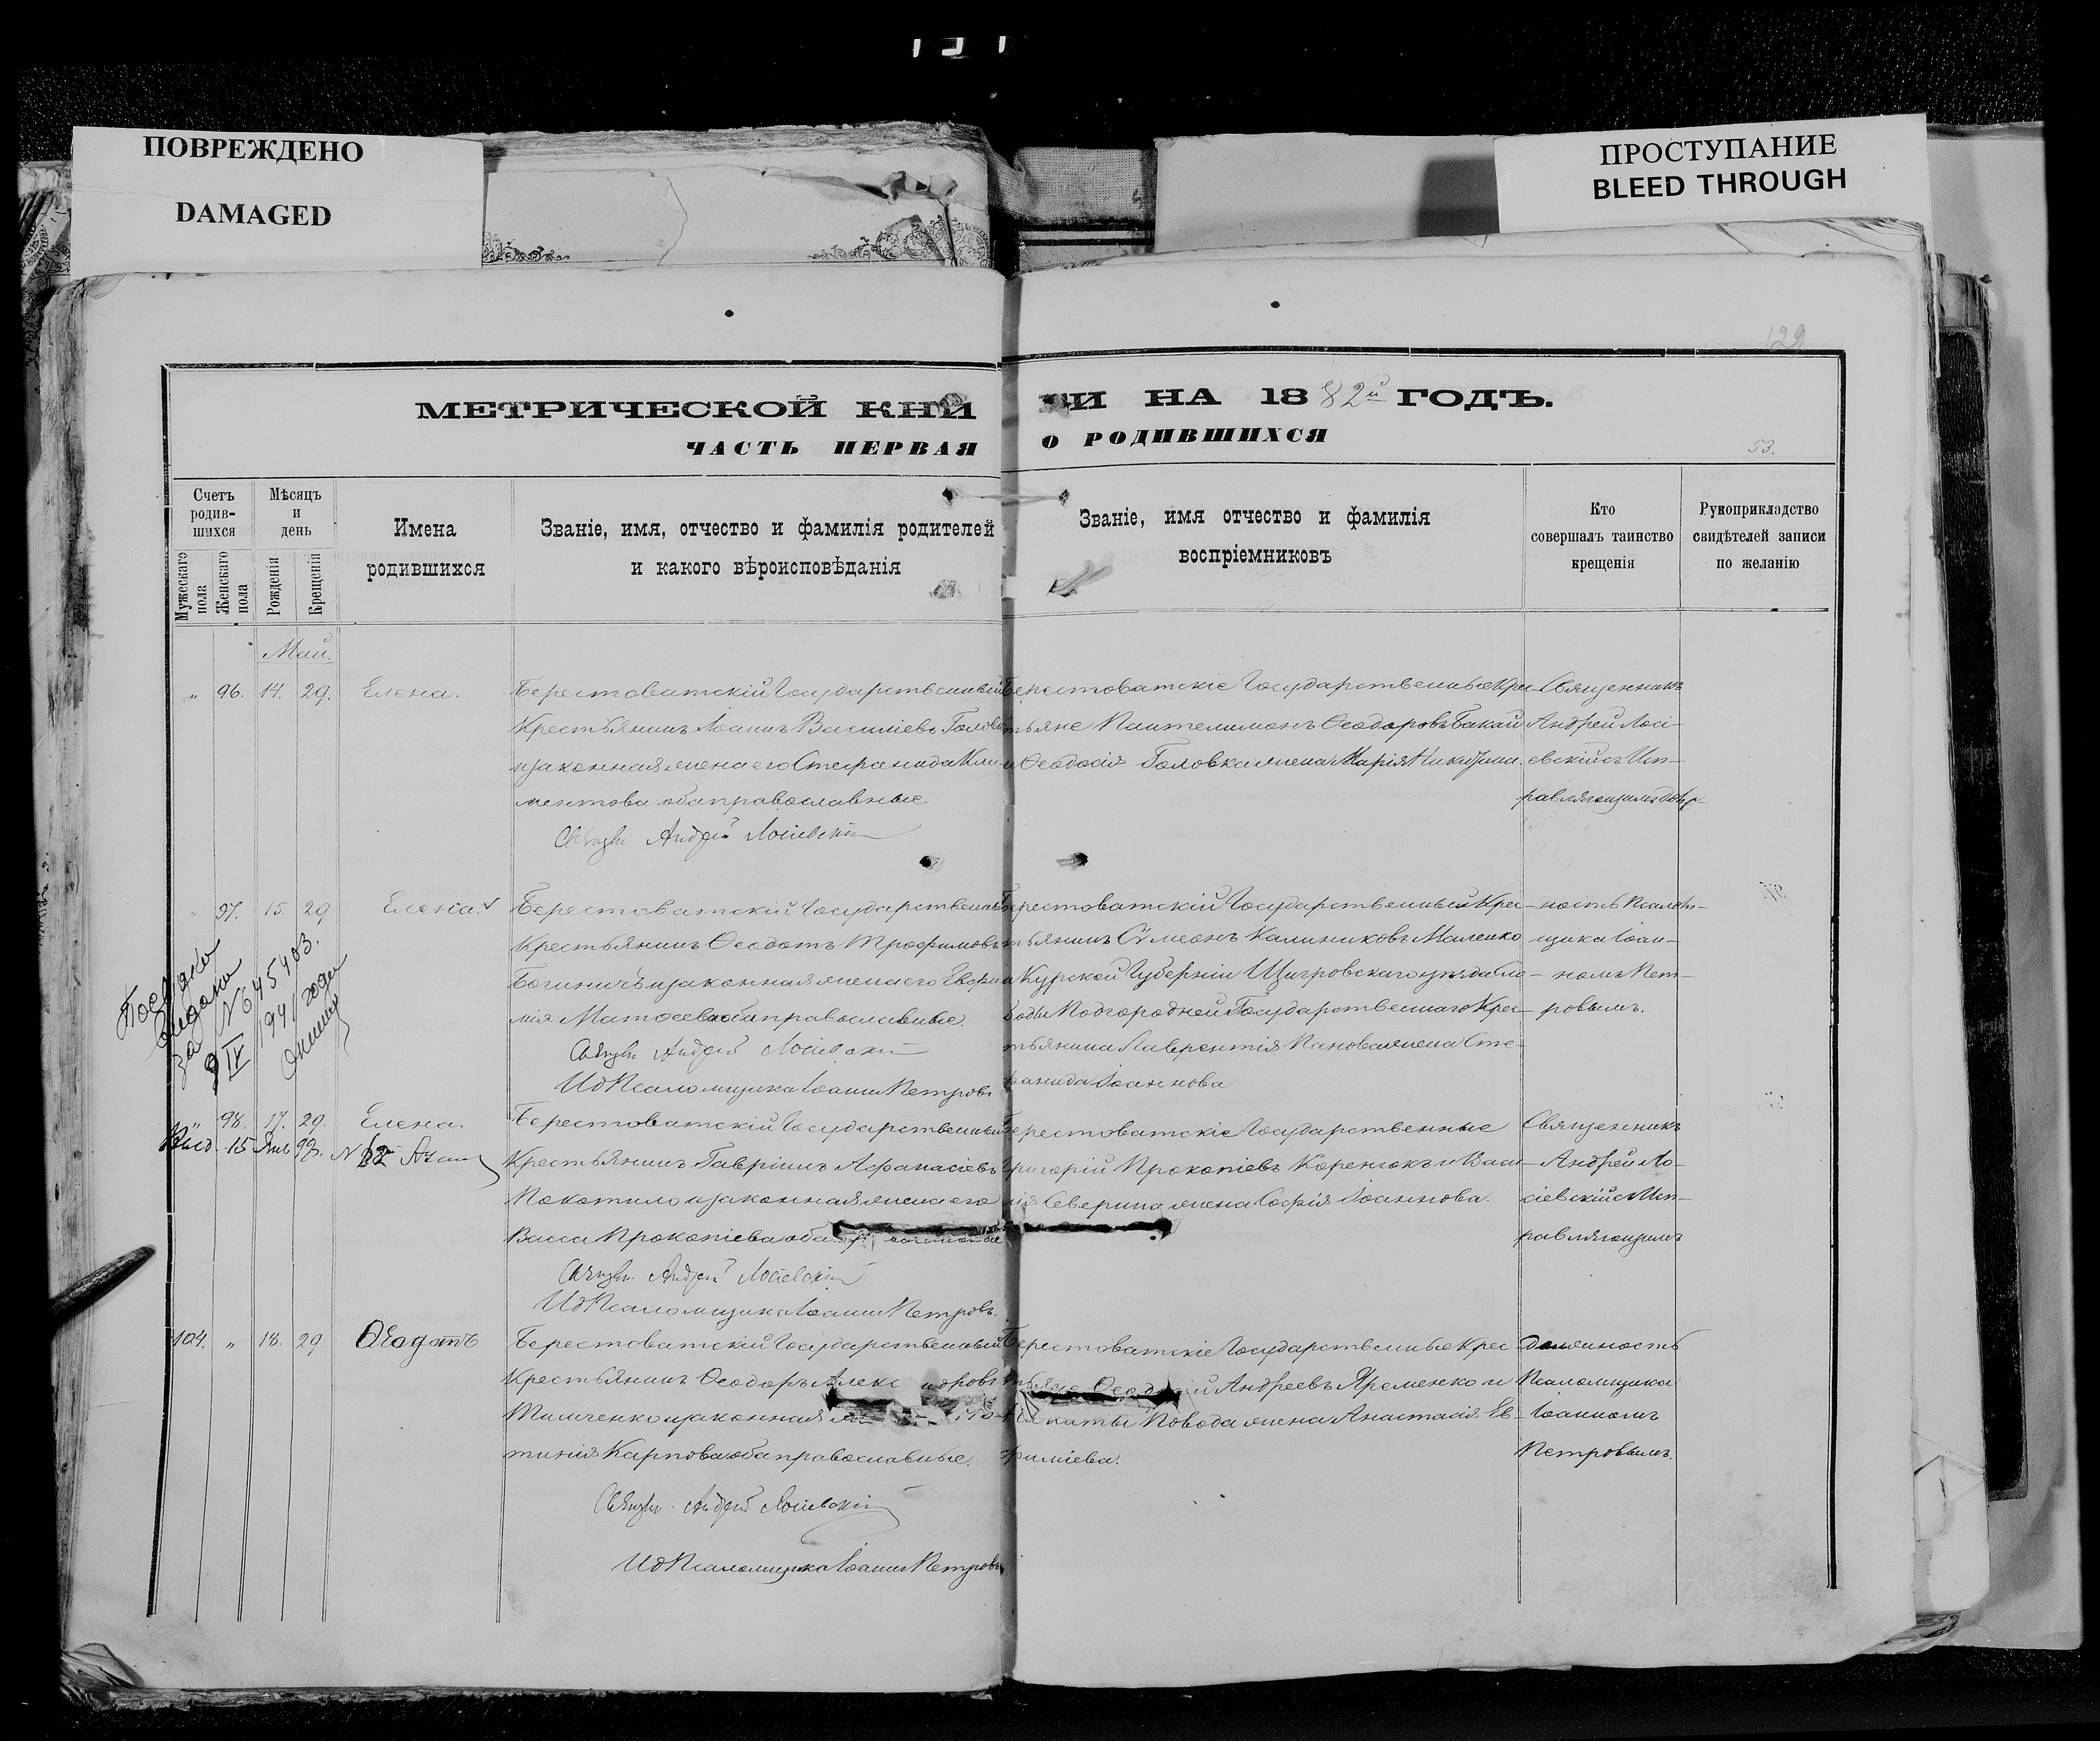 ПОВРЕЖДЕНО
DAMAGED
ПРОСТУПАНИЕ
BLEED THROUGH
129
МЕТРИЧЕСКОЙ КНИ ГИ НА 1882й ГОДЪ.
ЧАСТЬ ПЕРВАЯ О РОДИВШИХСЯ
53.
Счетъ родив-шихся
Мужескаго пола
Женскаго пола
Мѣсяцъ и день
Рожденія
Крещенія
Имена родившихся
Званіе, имя, отчество и фамилія родителей
и какого вѣроисповѣданія
Званіе, имя отчество и фамилія
воспріемниковъ
Кто
совершалъ таинство
крещенія
Рукоприкладство
свидѣтелей записи
по желанію
Май.
„ 96. 14. 29. Елена.
Берестоватскій Государственный
Крестьянинъ Іоаннъ Василіевъ Головко
и законная жена его Стефанида Кли-
ментова оба православные.
Священ Андрей Лосіевскій
Берестоватскіе Государственные Кре-
стьяне Пантелимонъ Ѳеодоровъ Бакай
и Ѳеодосія Головка жена Марія Никитина.
Священникъ
Андрей Лосі-
евскій съ Исп-
равляющимъ долж-
„ 97. 15. 29 Елена.
Берестоватскій Государственный
Крестьянинъ Ѳеодотъ Трофимовъ
Богиничъ и законная жена его Евфи-
мія Матѳеева оба православные.
Священ Андрей Лосіевскій
ИдПсаломщика Іоаннъ Петровъ
Берестоватскій Государственный Крес-
тьянинъ Сѵмеонъ Калиниковъ Маленко
и Курской Губерніи Щигровскаго уѣзда Сло-
боды Подгородней Государственнаго Крес-
тьянина Лаврентія Панова жена Сте-
фанида Іоаннова
ность Псалом-
щика Іоан-
номъ Пет-
ровымъ.
за N 645403.
9 IV 1941 года
„ 98. 17. 29. Елена.
Выд. 15 Янв 99. N 12
Берестоватскій Государственный
Крестьянинъ Гавріилъ Афанасіевъ
Покотило и законная жена его
Васса Прокопіева оба
Священ. Андрей Лосіевскій
ИдПсаломщика Іоаннъ Петровъ.
Берестоватскіе Государственные
Григорій Прокопіевъ Коренюкъ и Васи-
лія Северина жена Софія Іоаннова.
Священникъ
Андрей Ло-
сіевскій съ Исп-
равляющимъ
104. „ 18. 29. Ѳеодотъ
Берестоватскій Государственный
Крестьянинъ Ѳеодоръ Алекс ндровъ
Тимченко и законная
тинія Карпова оба православные.
Священ. Андрей Лосіевскій
ИдПсаломщика Іоаннъ Петровъ
Берестоватскіе Государственные Крес
тьяне Андреевъ Яременко и
Повода жена Анастасія Ев-
фиміева.
Должность
Псаломщика
Іоанномъ
Петровымъ.